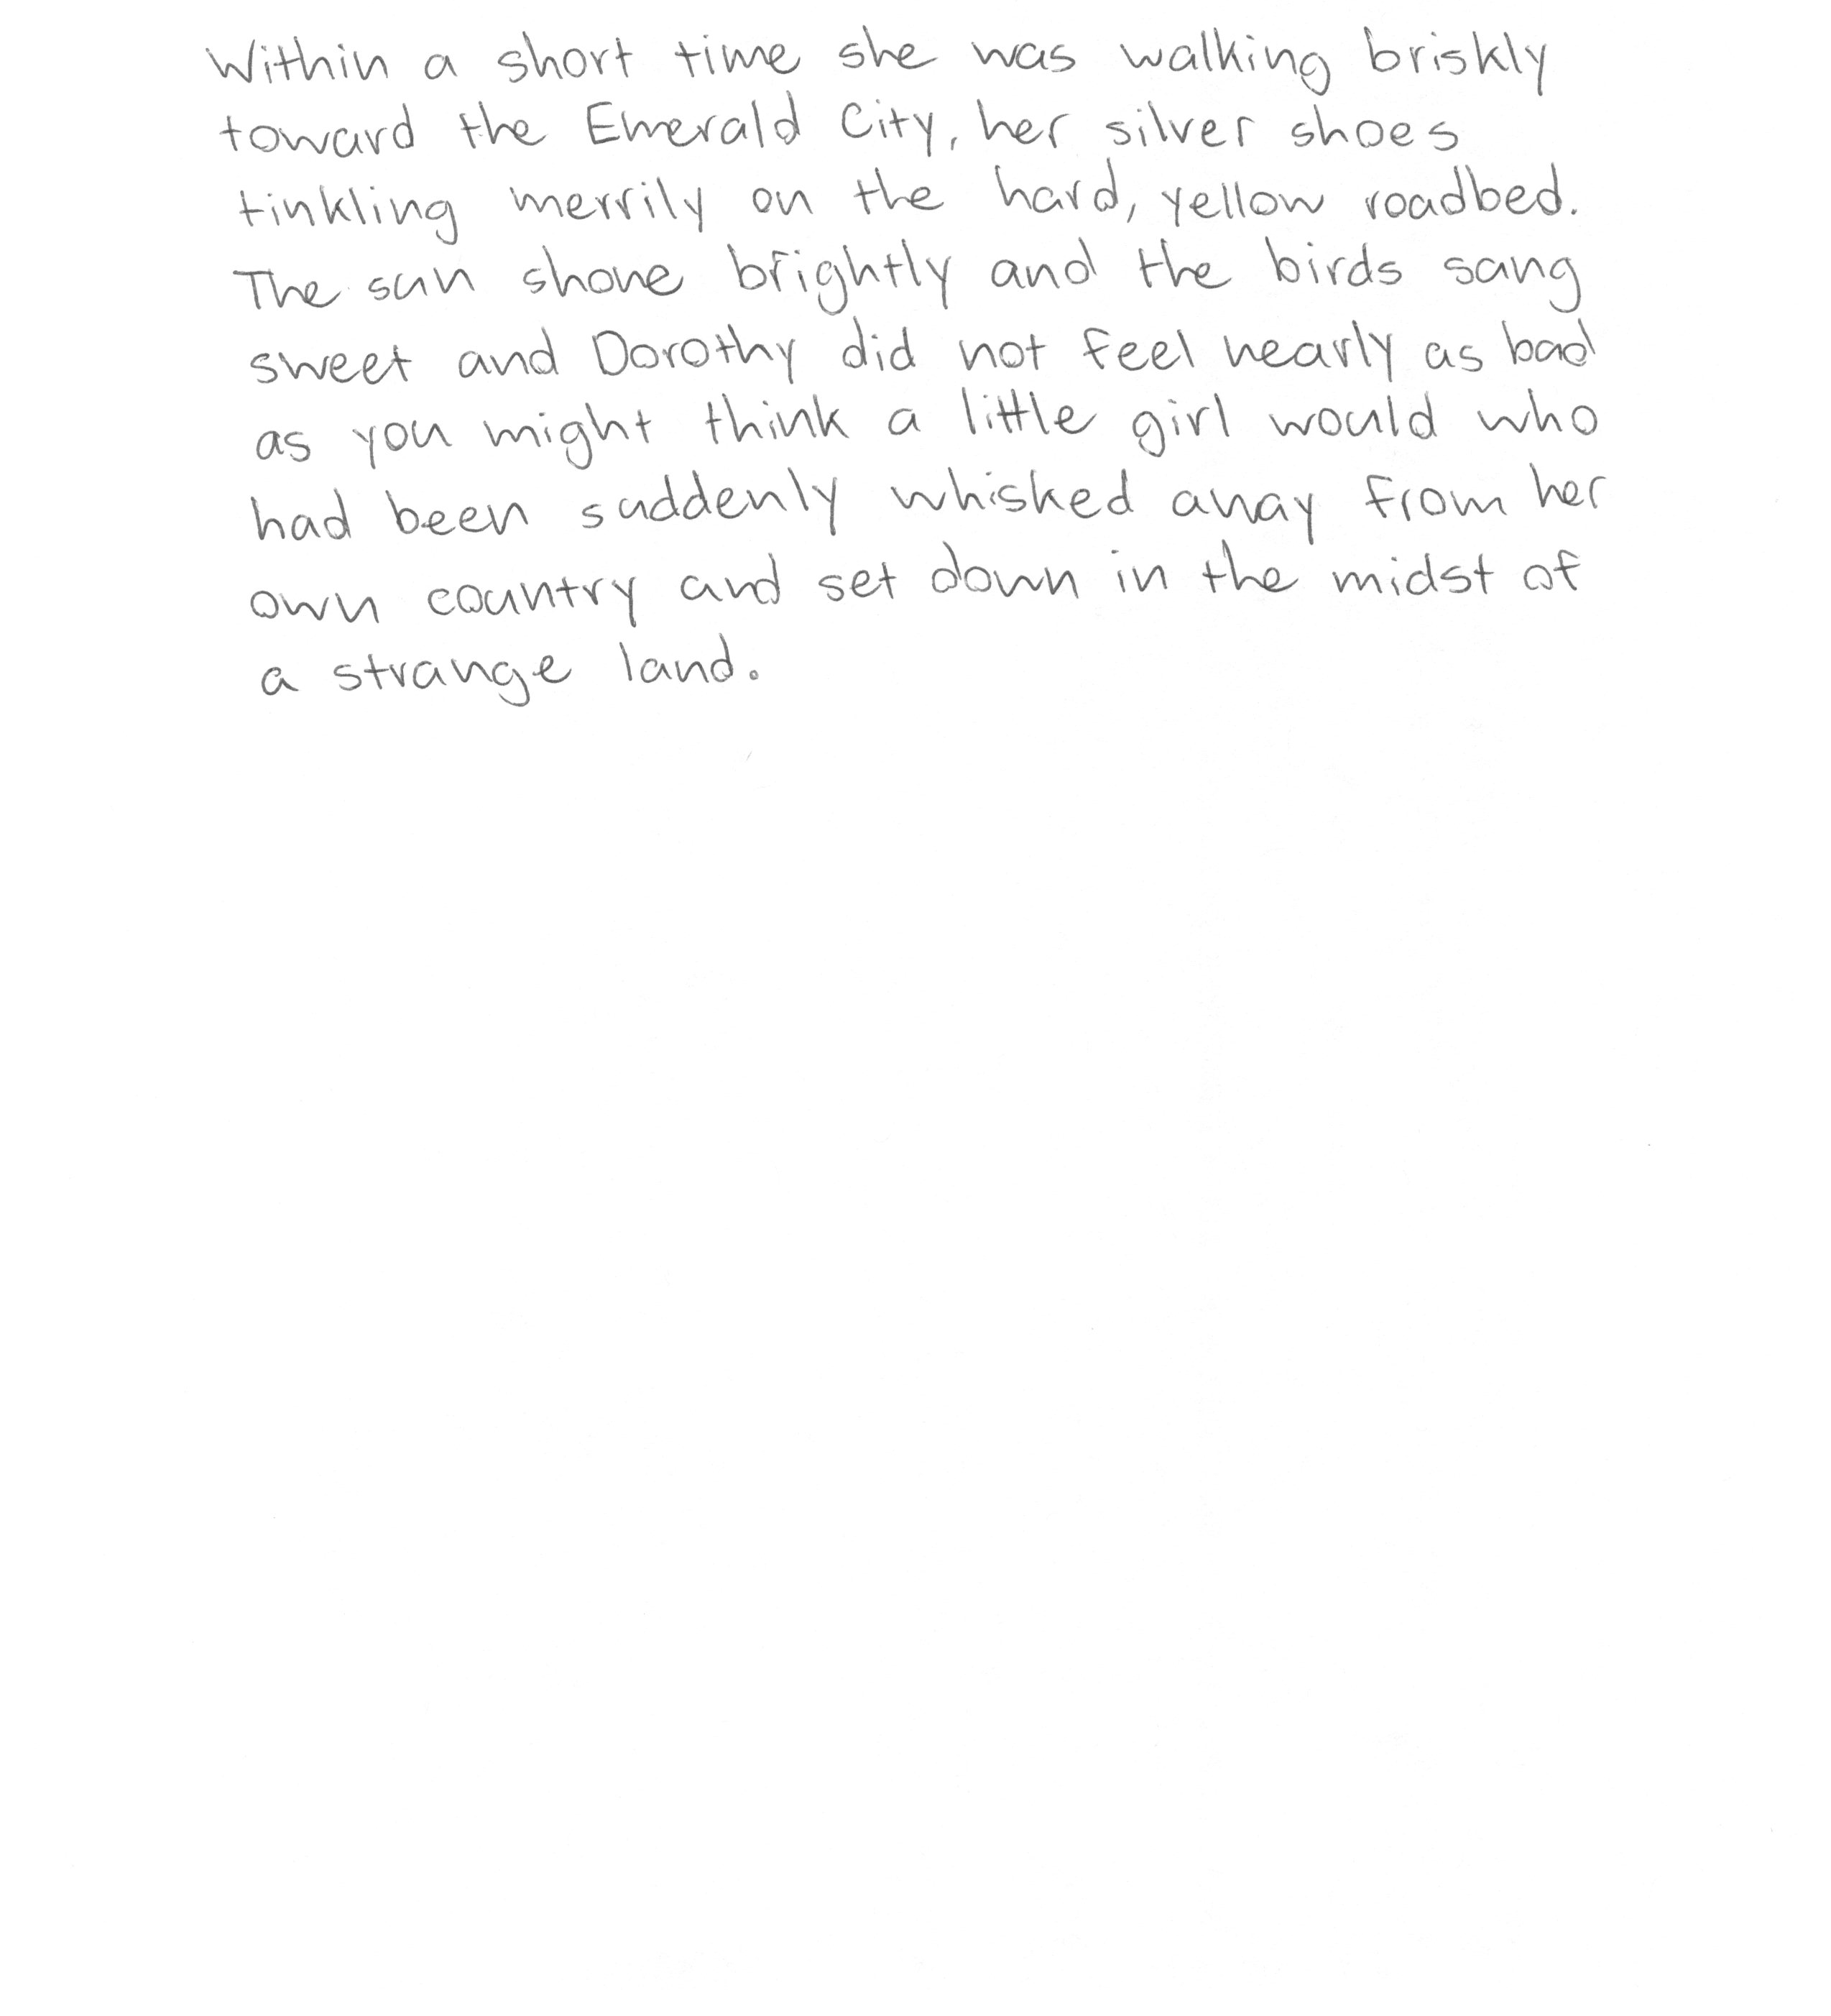 Within a short time she was walking briskly
toward the Emerald City, her silver shoes
tinkling merrily on the hard, yellow roadbed.
The sun shone brightly and the birds sang
sweet and Dorothy did not feel nearly as bad
as you might think a little girl would who
had been suddenly whisked away from her
own country and set down in the midst of
a strange land.